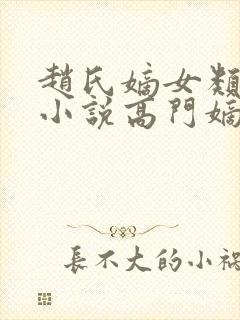 趙氏嫡女類
小説高門嫡
長不大的小禍